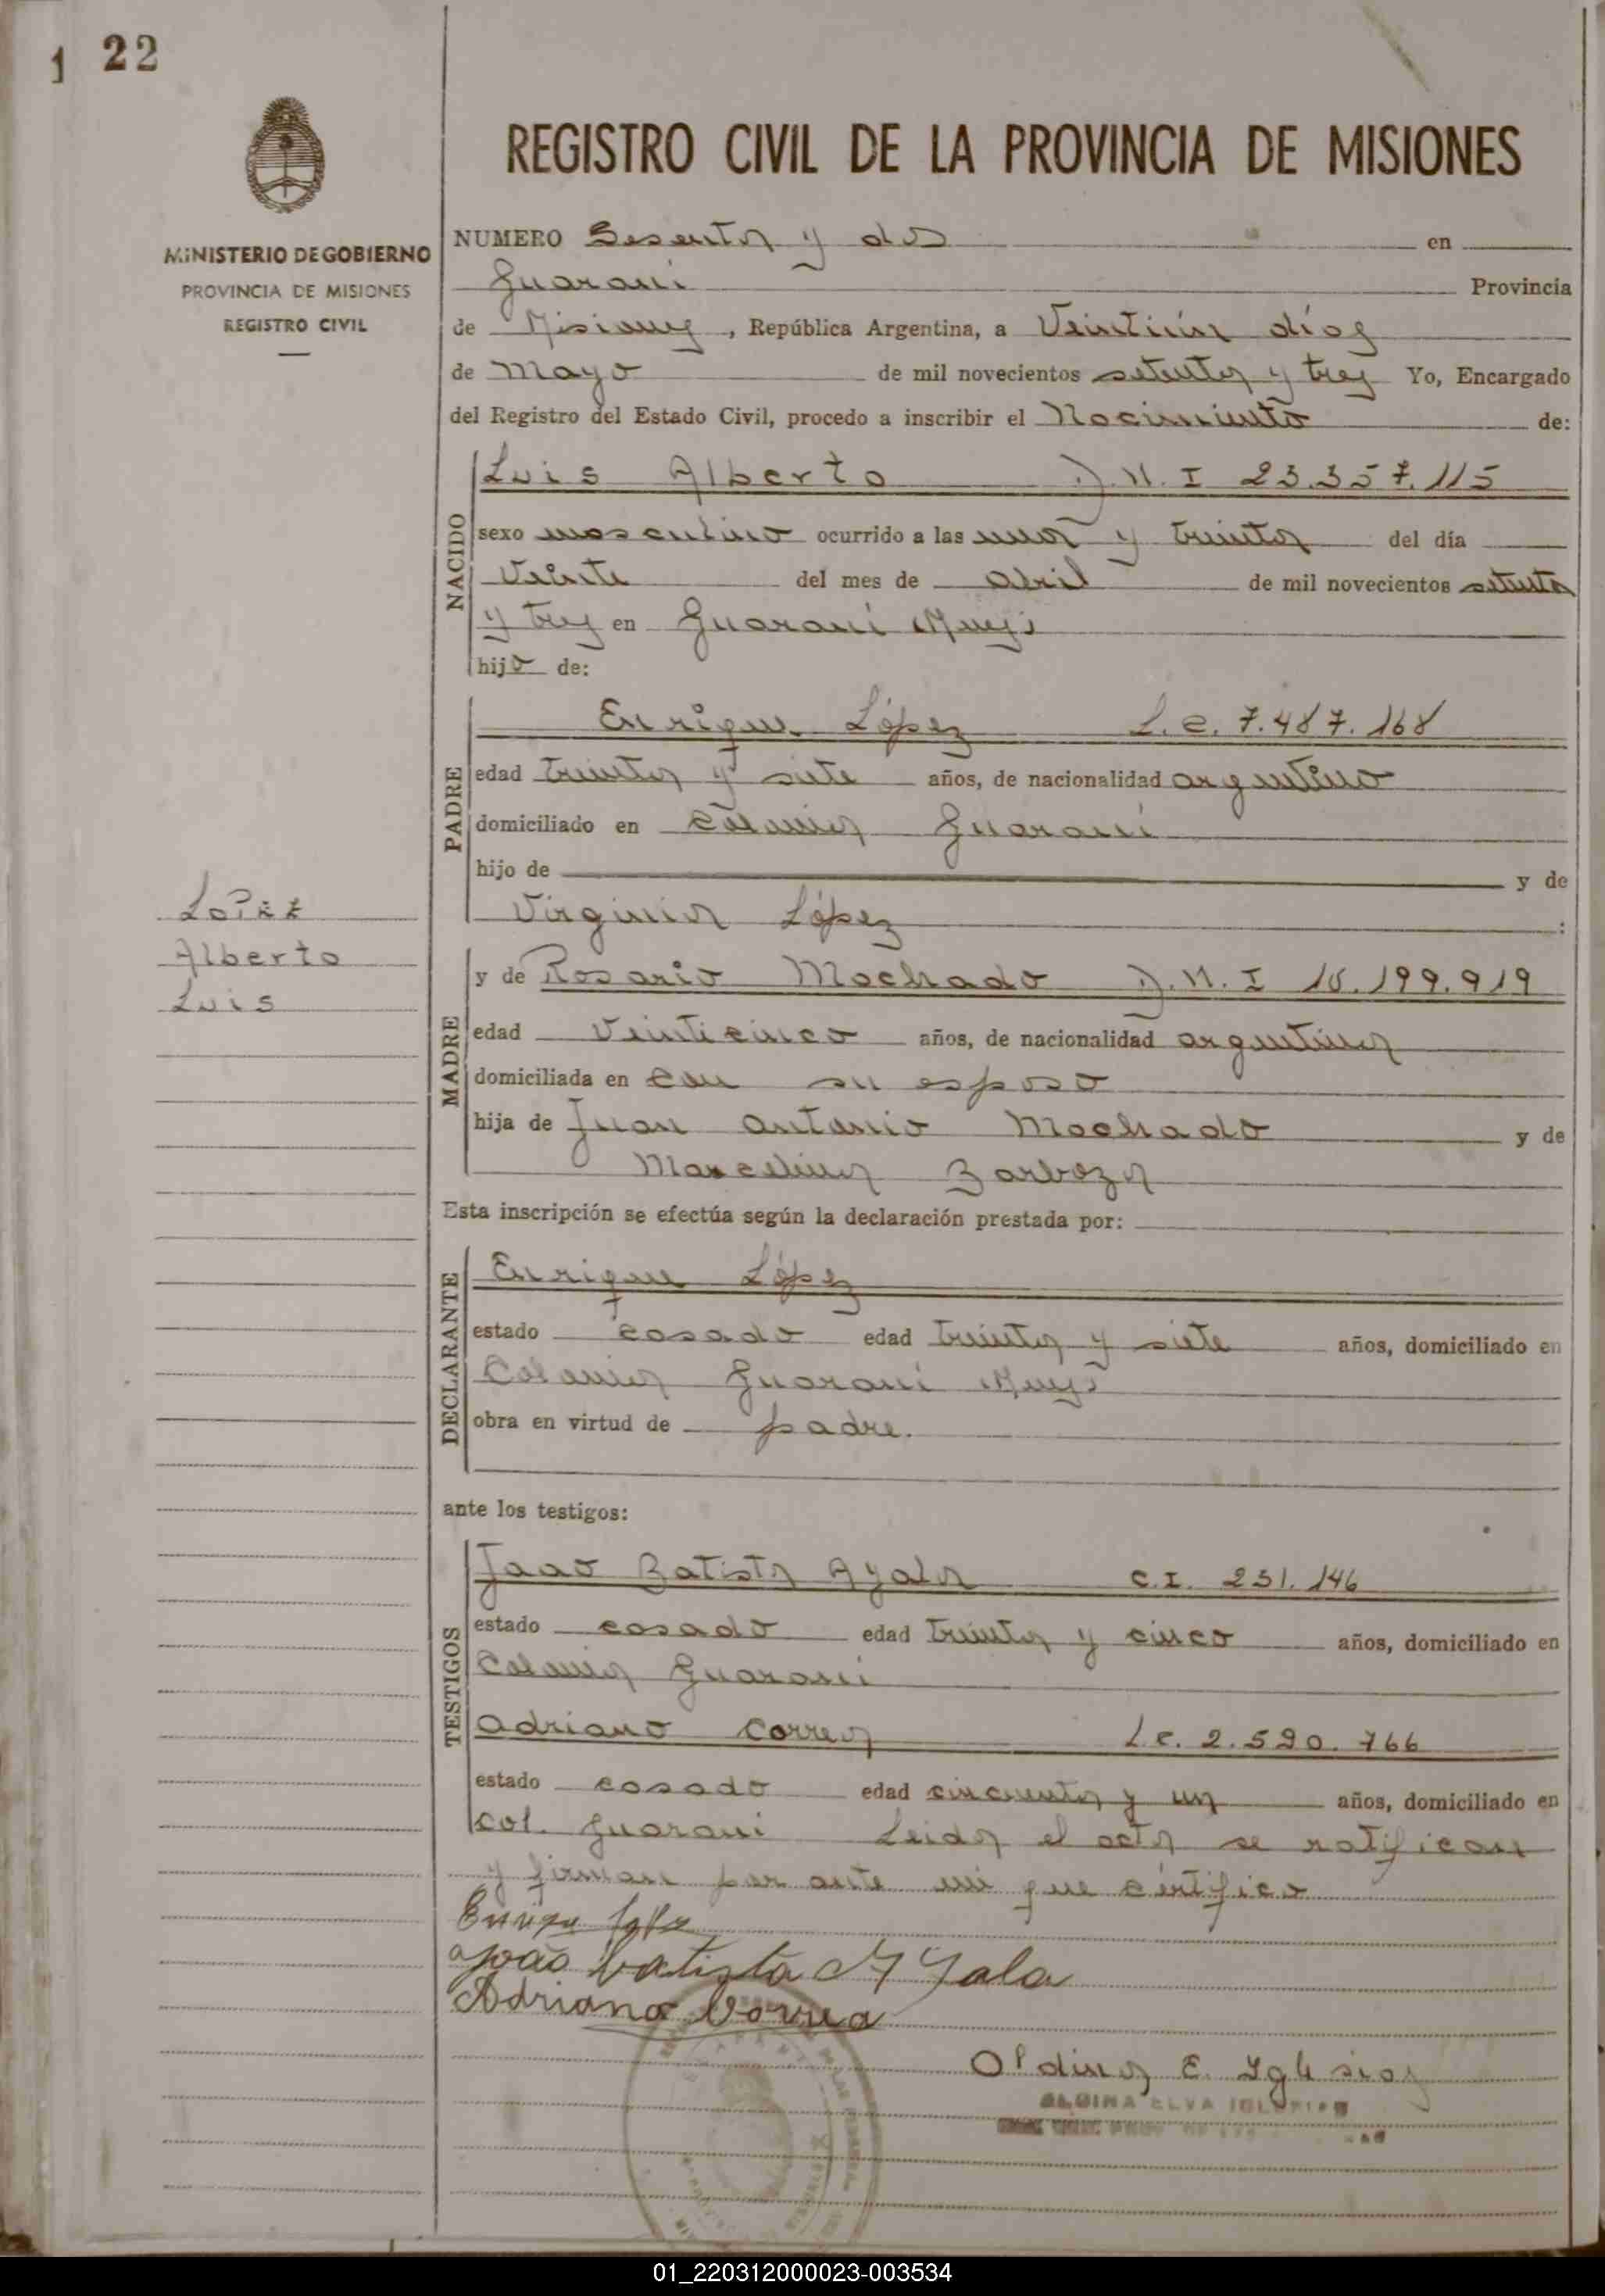 1 22
MINISTERIO DE GOBIERNO
PROVINCIA DE MISIONES
REGISTRO CIVIL
REGISTRO CIVIL DE LA PROVINCIA DE MISIONES
NUMERO Sesenta y dos en
Guaraní Provincia
de Misiones, República Argentina, a Veintiún días
de Mayo de mil novecientos setenta y tres Yo, Encargado
del Registro del Estado Civil, procedo a inscribir el Nacimiento de:
NACIDO
Luis Alberto D.N.I 23.357.115
sexo masculino ocurrido a las una y treinta del día
Veinte del mes de abril de mil novecientos setenta
y tres en Guaraní Mnes
hijo de:
PADRE
Enrique López L.E. 7.487.168
edad treinta y siete años, de nacionalidad argentino
domiciliado en Colonia Guaraní
hijo de y de
Virginia López :
MADRE
y de Rosario Machado D.N.I 10.199.919
edad Veinticinco años, de nacionalidad argentina
domiciliada en con su esposo
hija de Juan Antonio Machado y de
Marcelina Barboza
Lopez
Alberto
Luis
Esta inscripción se efectúa según la declaración prestada por:
DECLARANTE
Enrique López
estado casado edad treinta y siete años, domiciliado en
Colonia Guaraní Mnes
obra en virtud de padre.
ante los testigos:
TESTIGOS
Joao Batista Ayala C.I. 231.146
estado casado edad treinta y cinco años, domiciliado en
Colonia Guaraní
Adriano Correa L.E. 2.590.766
estado casado edad cincuenta y un años, domiciliado en
Col. Guaraní Leida el acta se ratifican
y firman por ante mi que certifico
Enrique López
João batista Ayala
Adriano Correa
Oldina E. Iglesias
OLDINA ELVA IGLESIAS
01_220312000023-003534